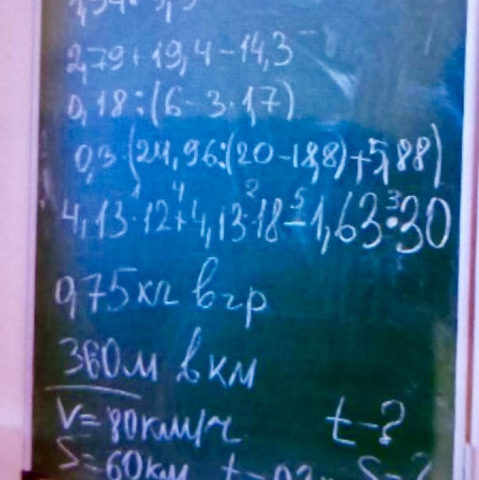 2,79+19,4-14,3
0,18:(6-3·1,7)
0,3·(24,96:(20-18,8)+5,88)
1 4 2 5 3
4,13·12+4,13·18-1,63·30
0,75кг в гр
360м в км
V=80км/ч t-?
S=60км